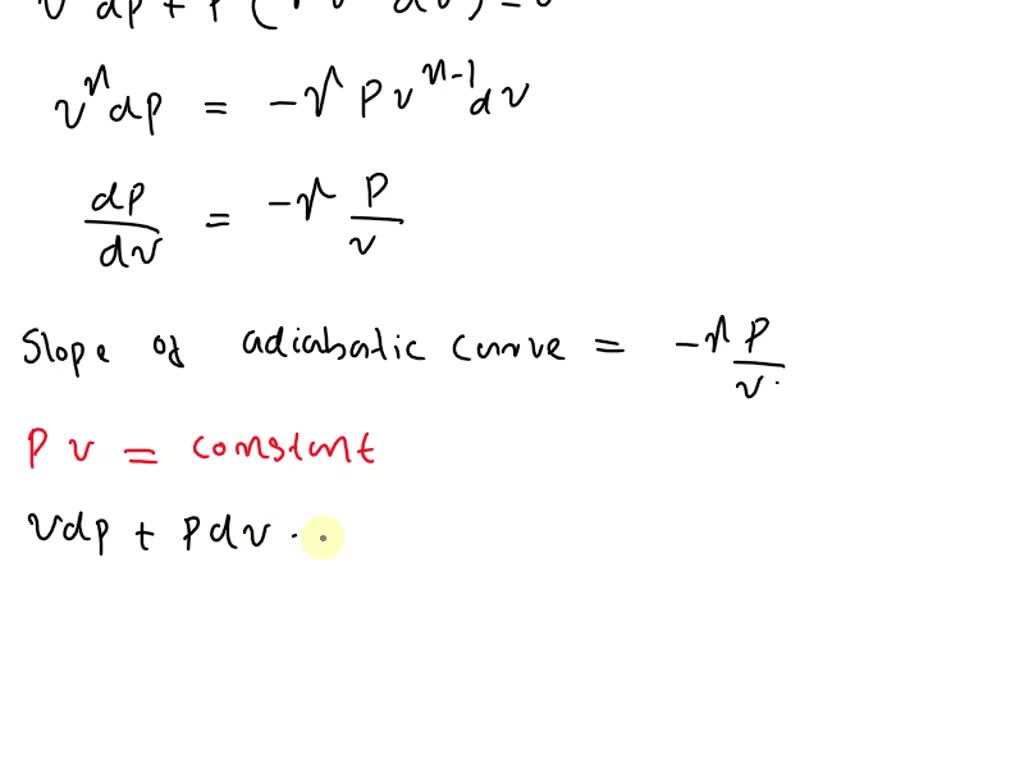 v dp + P ( v dv) = 0
v^n dp = -γ P v^{n-1} dv
dP/dv = -γ P/v
Slope of adiabatic curve = -γ P/v.
P v = constant
vdp + Pdv .